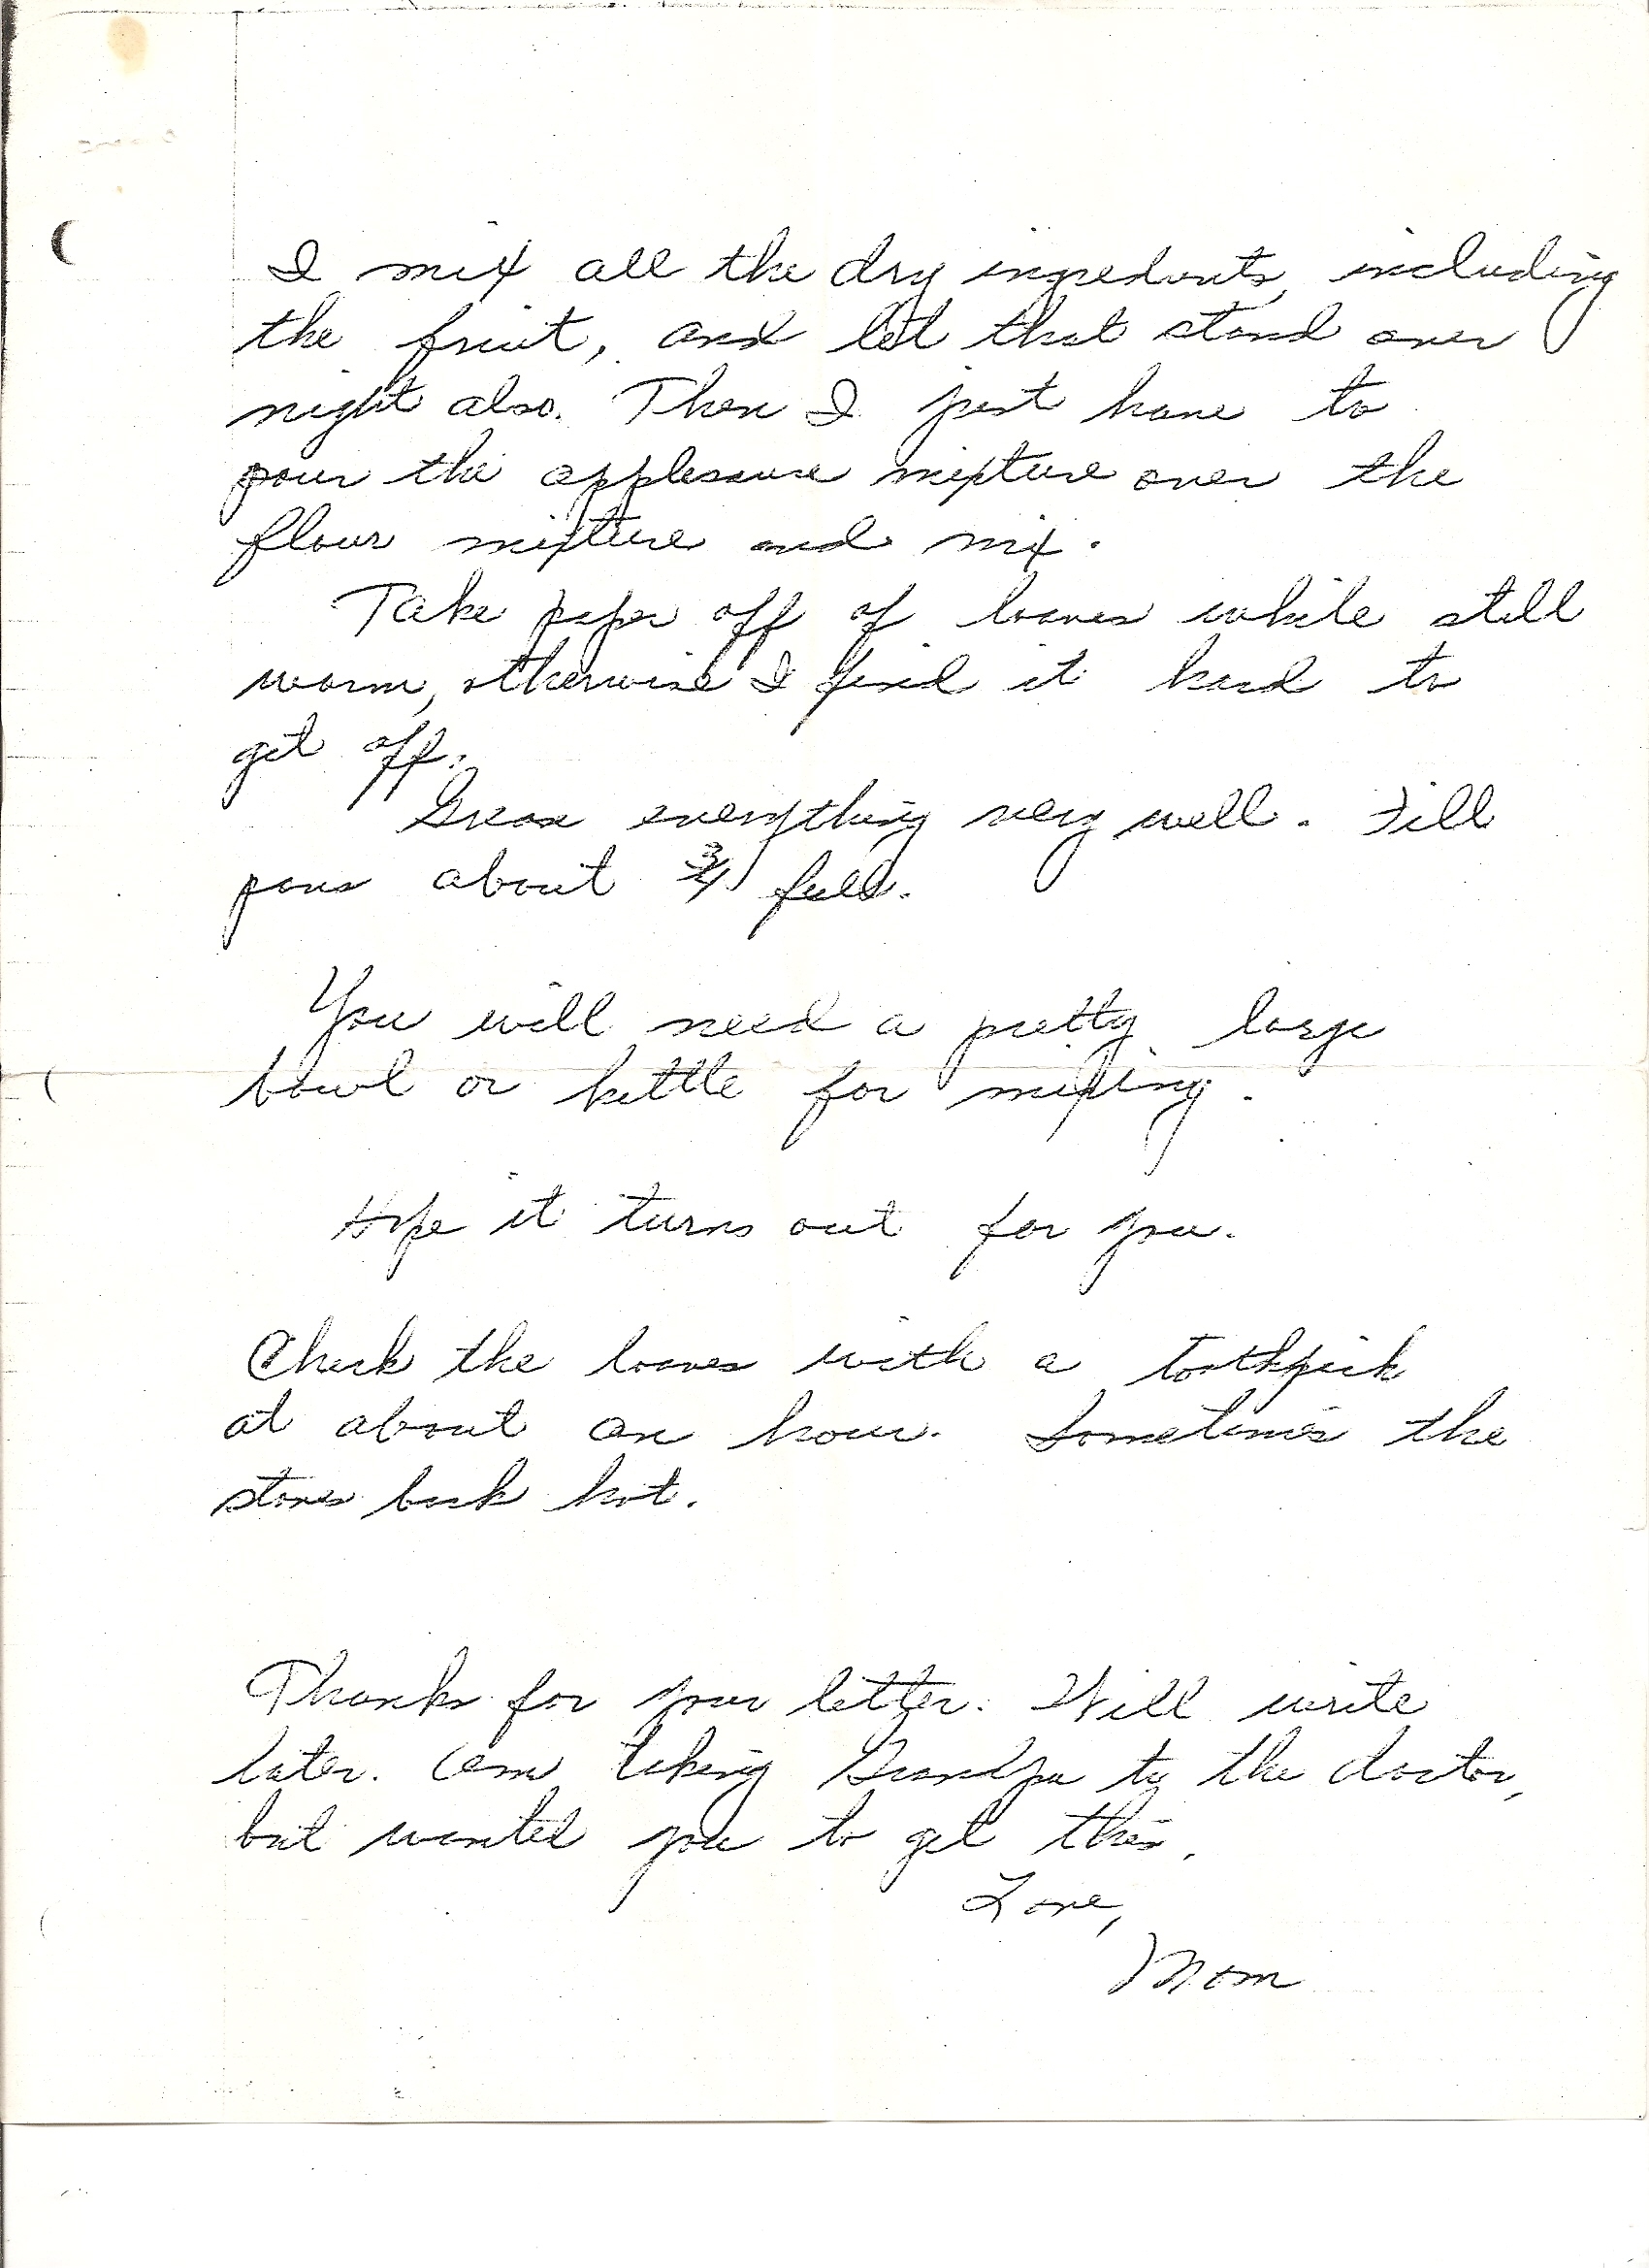 I mix all the dry ingredients, including
the fruit, and let that stand over
night also. Then I just have to
pour the applesauce mixture over the
flour mixture and mix.
Take paper off of loaves while still
warm, otherwise I find it hard to
get off.
Grease everything very well. Fill
pans about 3/4 full.
You will need a pretty large
bowl or kettle for mixing.
Hope it turns out for you.
Check the loaves with a toothpick
at about an hour. Sometimes the
stoves bake hot.
Thanks for your letter. Will write
later. Am taking Grandpa to the doctor,
but wanted you to get this.
Love,
Mom